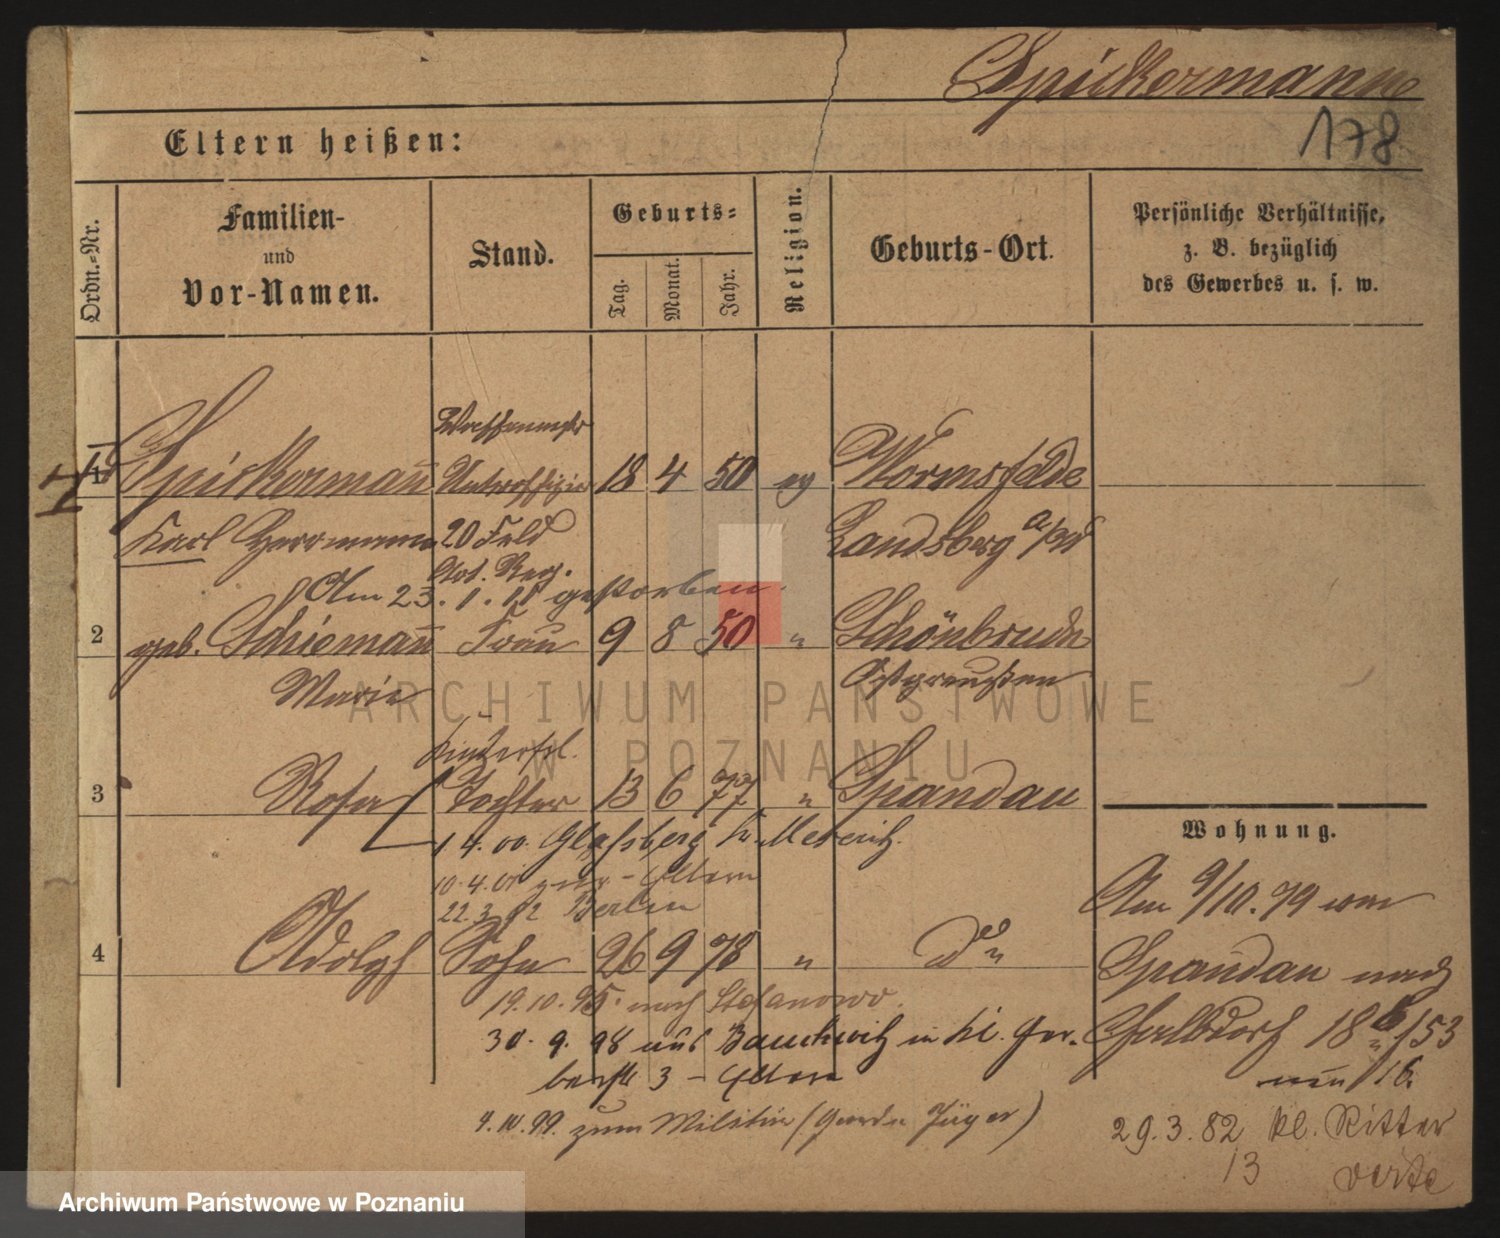 Spickermann
178
Eltern heißen:
Ordn.-Nr.
Familien-
und
Vor-Namen.
Stand.
Geburts-
Tag.
Monat.
Jahr.
Religion.
Geburts-Ort.
Persönliche Verhältnisse,
z. B. bezüglich
des Gewerbes u. s. w.
Spickermann Unteroffizier 18 4 50 ev Wormsfelde
Karl Herrmann 20 Feld Landsberg a/W
Art. Reg.
Am 23. 1. gestorben
2 geb. Schiemann Frau 9 8 50 " Schönbruch
Marie Ostpreußen
Kinderfrl.
3 Rosa Tochter 13 6 77 " Spandau
1 4. 00. Kr. Meseritz.
10. 4. 01 zur - Eltern
22. 3. 02 Berlin
4 Adolph Sohn 26 9 78 " do "
19. 10. 95. nach Stefanowo.
30. 9. 98 aus Bauchwitz in kl. Ger-
berstr 3 - Eltern
4. 10. 99. zum Militär (Garde Jäger)
Wohnung.
Am 9/10. 79 von
Spandau nach
Halbdorf 18 b/53
16.
29. 3. 82 kl. Ritter
13
verte
ARCHIWUM PAŃSTWOWE
W POZNANIU
Archiwum Państwowe w Poznaniu